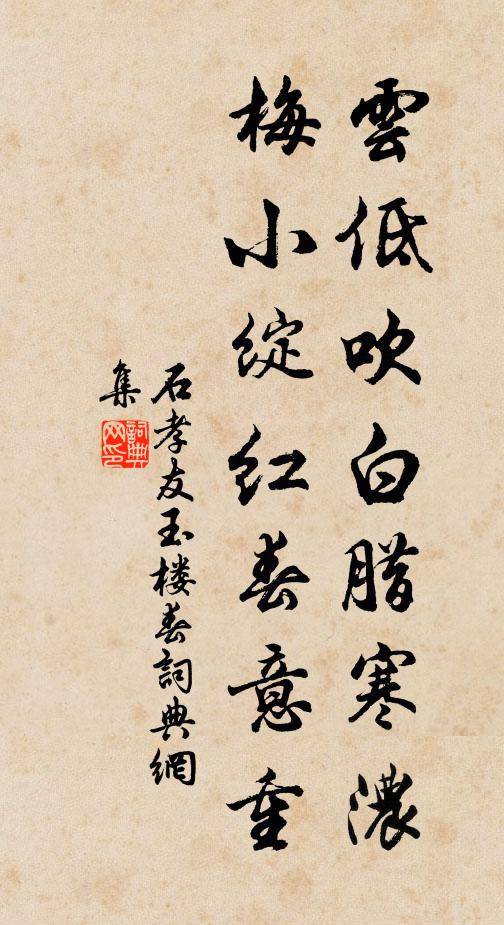 雲低吹白腊寒濃
梅小綻红春意重
石孝友玉楼春詞典網
集
詞典网印